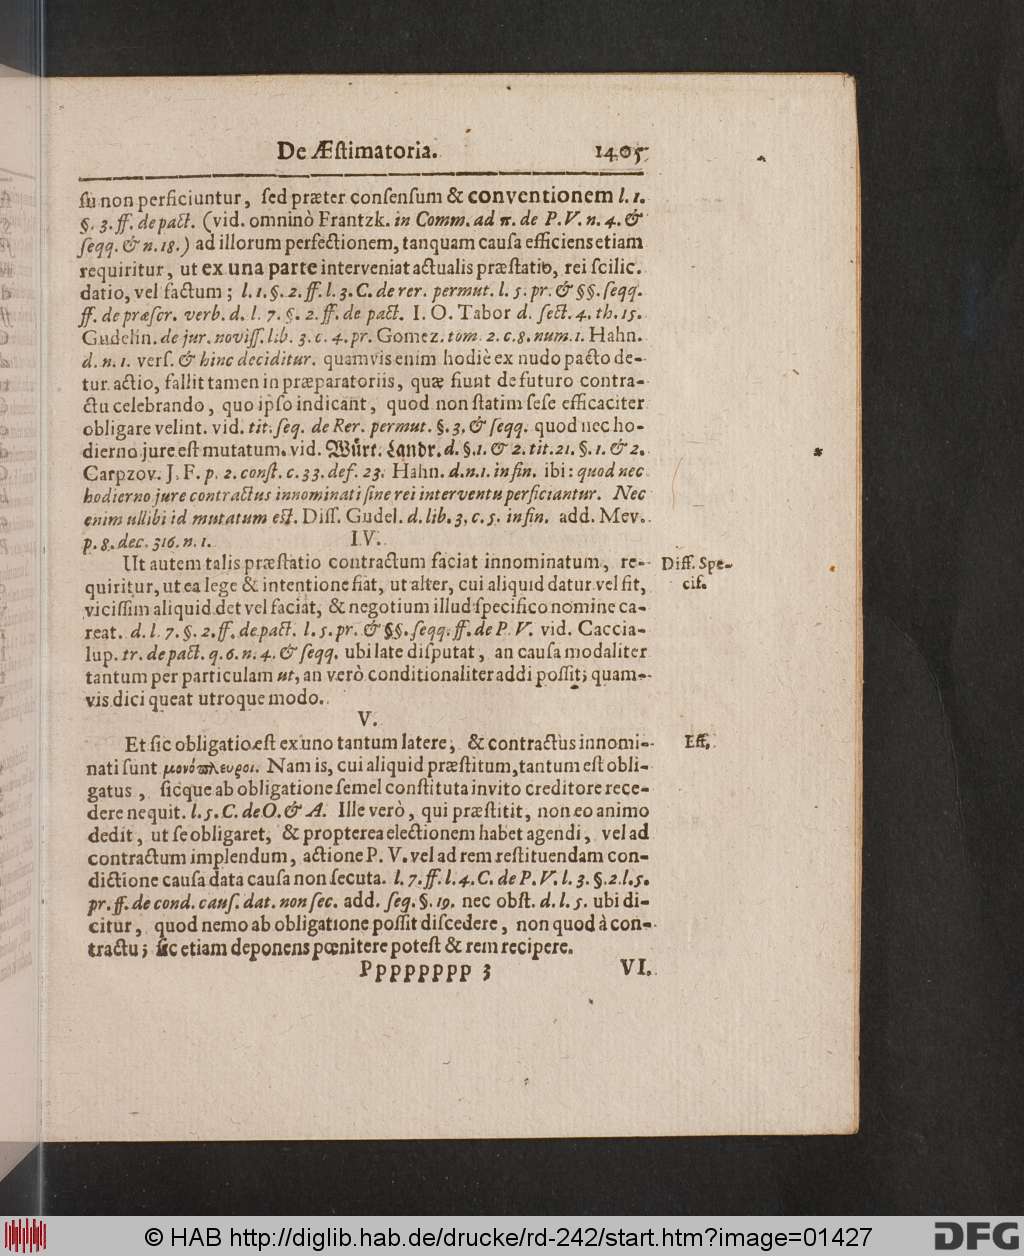 De Æſtimatoria. 1405
ſu non perficiuntur, ſed præter conſenſum & conventionem l. 1.
§. 3. ff. de pact. (vid. omninò Frantzk. in Comm. ad π. de P. V. n. 4. &
ſeqq. & n. 18.) ad illorum perfectionem, tanquam cauſa efficiens etiam
requiritur, ut ex una parte interveniat actualis præſtatio, rei ſcilic.
datio, vel factum; l. 1. §. 2. ff. l. 3. C. de rer. permut. l. 5. pr. & §§. ſeqq.
ff. de præſcr. verb. d. l. 7. §. 2. ff. de pact. I. O. Tabor d. ſect. 4. th. 15.
Gudelin. de jur. noviſſ. lib. 3. c. 4. pr. Gomez. tom. 2. c. 8. num. 1. Hahn.
d. n. 1. verſ. & hinc deciditur. quamvis enim hodiè ex nudo pacto de-
tur actio, fallit tamen in præparatoriis, quæ fiunt de futuro contra-
ctu celebrando, quo ipſo indicant, quod non ſtatim ſeſe efficaciter
obligare velint. vid. tit. ſeq. de Rer. permut. §. 3. & ſeqq. quod nec ho-
dierno jure eſt mutatum. vid. Würt. Landr. d. §. 1. & 2. tit. 21. §. 1. & 2.
Carpzov. J. F. p. 2. conſt. c. 33. def. 23. Hahn. d. n. 1. in fin. ibi: quod nec
hodierno jure contractus innominati ſine rei interventu perficiantur. Nec
enim ullibi id mutatum eſt. Diſſ. Gudel. d. lib. 3. c. 5. in fin. add. Mev.
p. 8. dec. 316. n. 1. IV.
Ut autem talis præſtatio contractum faciat innominatum, re- Diff. Spe-
quiritur, ut ea lege & intentione fiat, ut alter, cui aliquid datur vel fit, cif.
viciſſim aliquid det vel faciat, & negotium illud ſpecifico nomine ca-
reat. d. l. 7. §. 2. ff. de pact. l. 5. pr. & §§. ſeqq. ff. de P. V. vid. Caccia-
lup. tr. de pact. q. 6. n. 4. & ſeqq. ubi late diſputat, an cauſa modaliter
tantum per particulam ut, an verò conditionaliter addi poſſit; quam-
vis dici queat utroque modo.
V.
Et ſic obligatio eſt ex uno tantum latere, & contractus innomi- Eff.
nati ſunt μονόπλευροι. Nam is, cui aliquid præſtitum, tantum eſt obli-
gatus, ſicque ab obligatione ſemel conſtituta invito creditore rece-
dere nequit. l. 5. C. de O. & A. Ille verò, qui præſtitit, non eo animo
dedit, ut ſe obligaret, & propterea electionem habet agendi, vel ad
contractum implendum, actione P. V. vel ad rem reſtituendam con-
dictione cauſa data cauſa non ſecuta. l. 7. ff. l. 4. C. de P. V. l. 3. §. 2. l. 5.
pr. ff. de cond. cauſ. dat. non ſec. add. ſeq. §. 19. nec obſt. d. l. 5. ubi di-
citur, quod nemo ab obligatione poſſit diſcedere, non quod à con-
tractu; ſic etiam deponens pœnitere poteſt & rem recipere.
Pppppppp 3 VI.
© HAB http://diglib.hab.de/drucke/rd-242/start.htm?image=01427
DFG